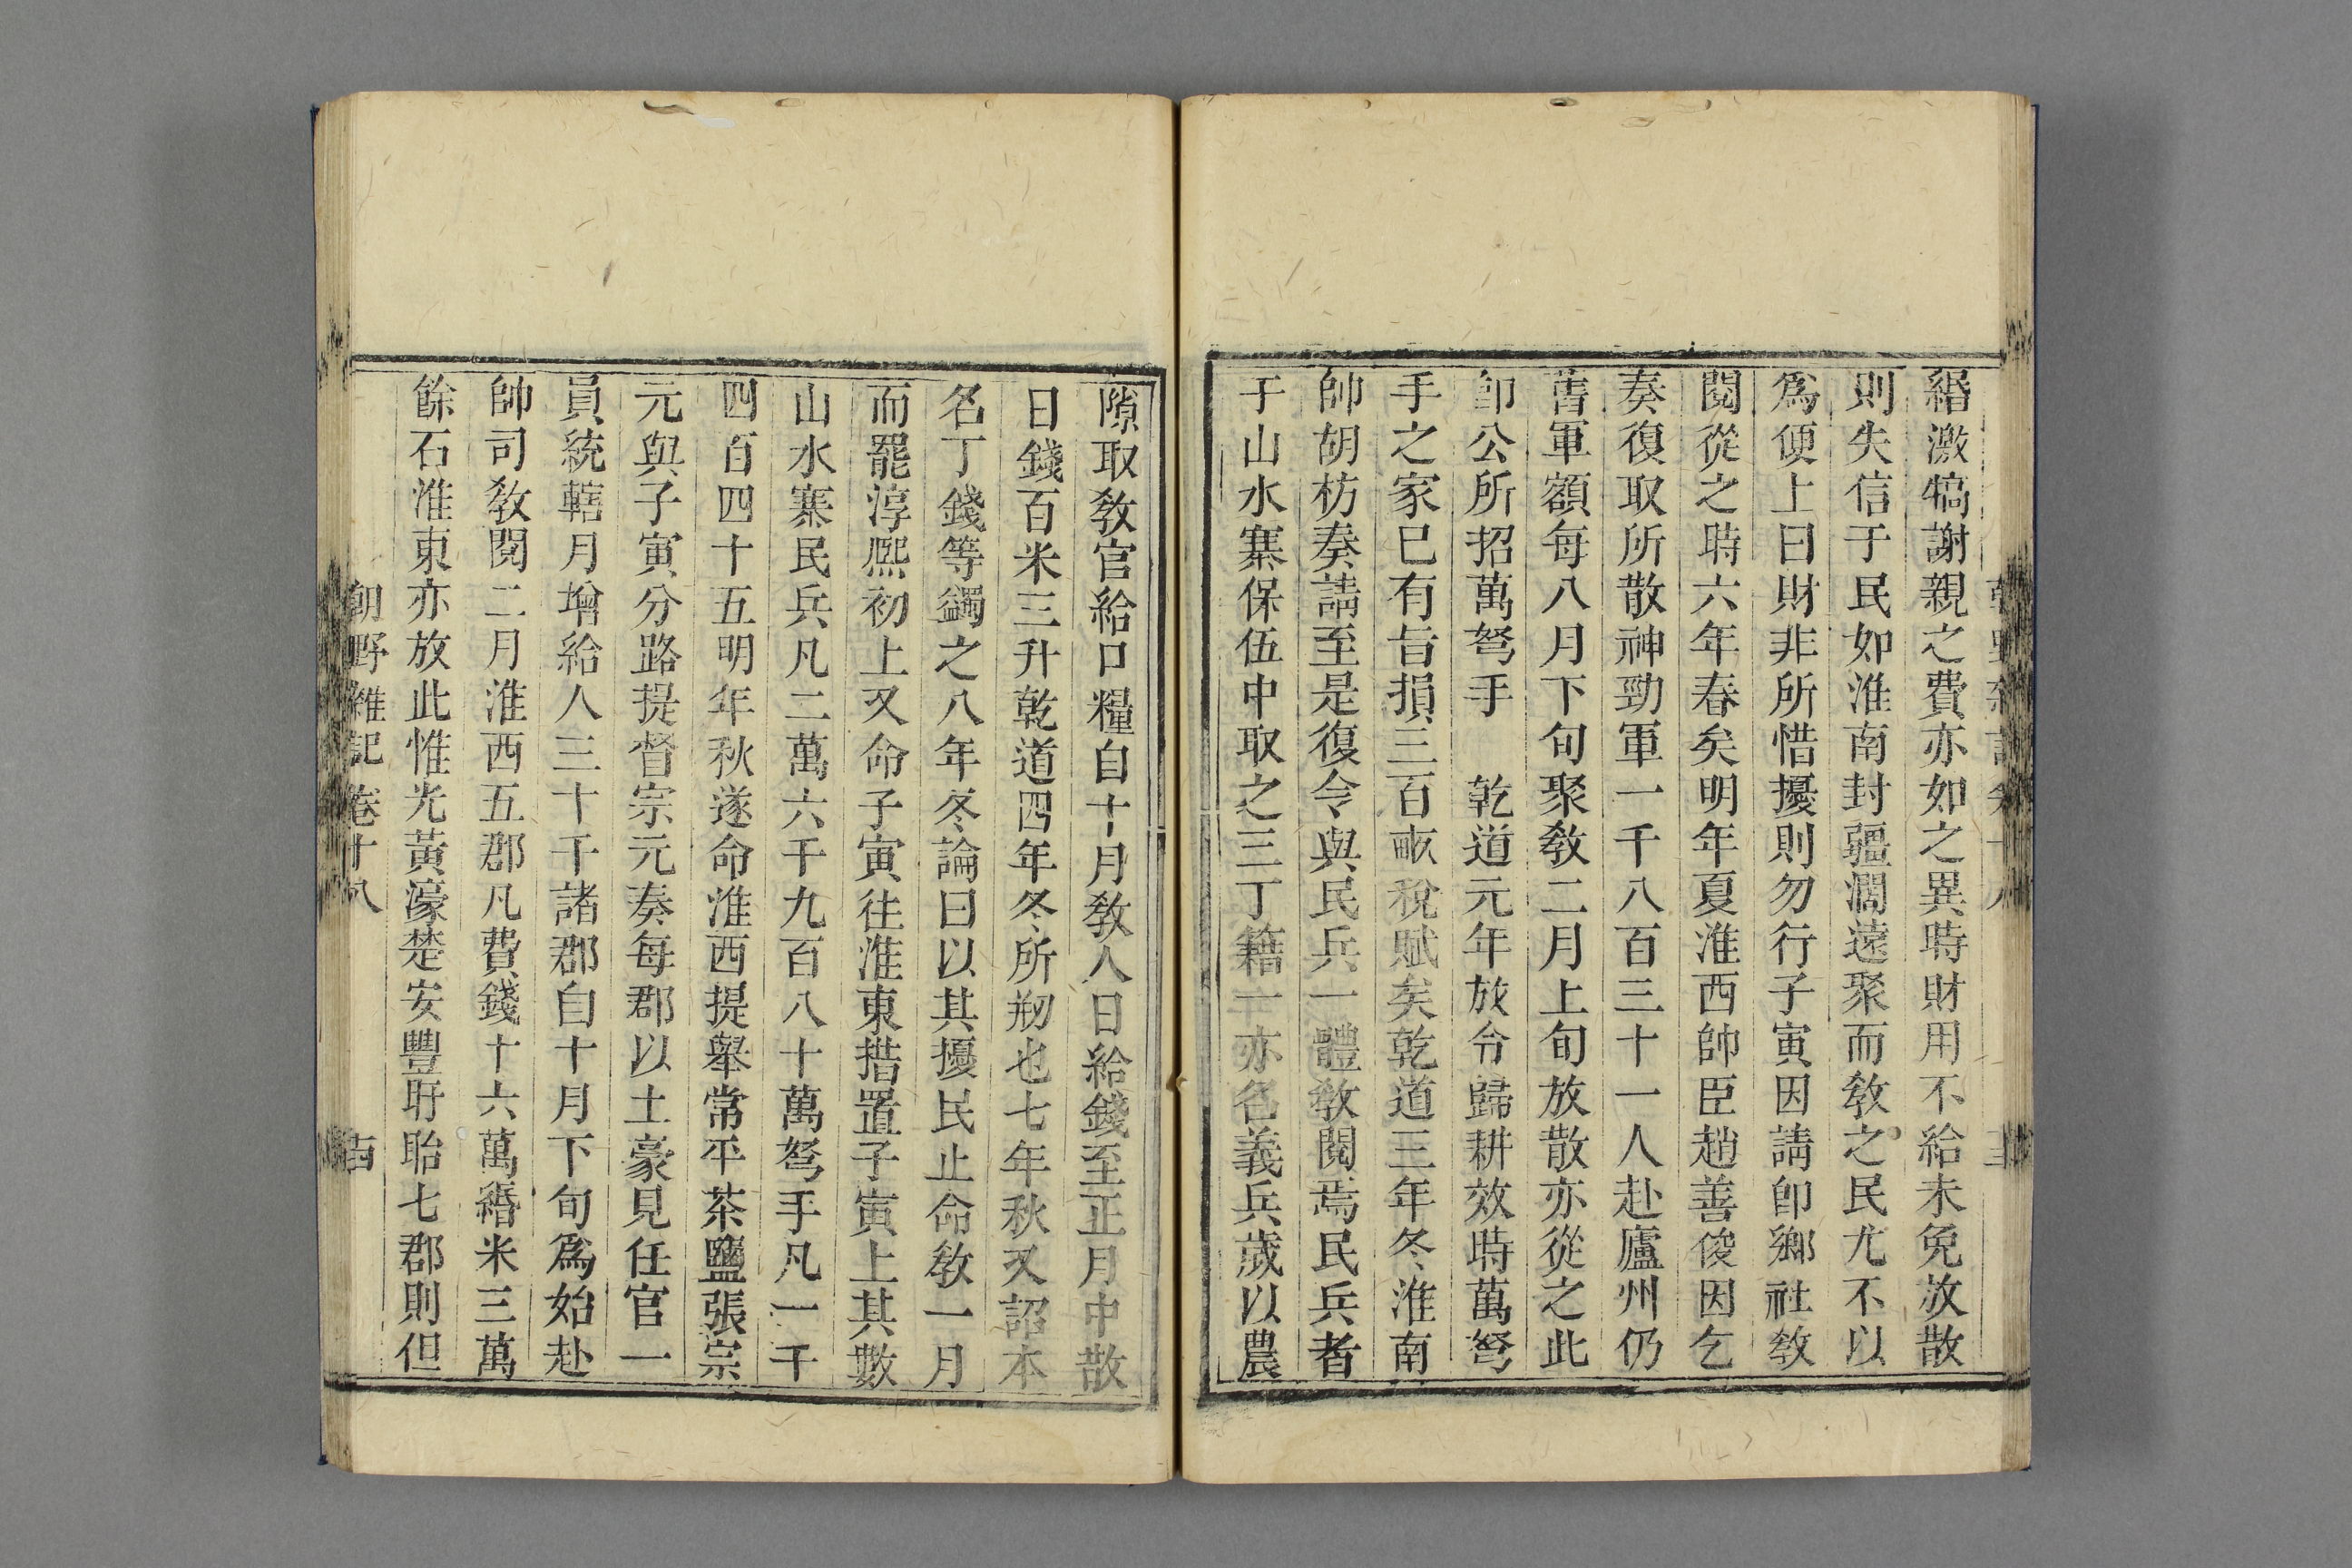 緡激犒謝親之費亦如之異時財用不給未免放散
則失信于民如淮南封疆濶遠聚而敎之民尤不以
爲便上曰財非所惜擾則勿行子寅因請卽鄕社敎
閱從之時六年春矣明年夏淮西帥臣趙善俊因乞
奏復取所散神勁軍一千八百三十一人赴廬州仍
舊軍額每八月下旬聚敎二月上旬放散亦從之此
卽公所招萬弩手　乾道元年放令歸耕效時萬弩
手之家已有旨損三百畝稅賦矣乾道三年冬淮南
帥胡枋奏請至是復令與民兵一體敎閱焉民兵者
于山水寨保伍中取之三丁籍一亦名義兵歲以農
隙取敎官給口糧自十月敎人日給錢至正月中散
日錢百米三升乾道四年冬所剏也七年秋又詔本
名丁錢等蠲之八年冬論曰以其擾民止命敎一月
而罷淳熙初上又命子寅往淮東措置子寅上其數
山水寨民兵凡二萬六千九百八十萬弩手凡一千
四百四十五明年秋遂命淮西提舉常平茶鹽張宗
元與子寅分路提督宗元奏每郡以土豪見任官一
員統轄月增給人三十千諸郡自十月下旬爲始赴
帥司敎閱二月淮西五郡凡費錢十六萬緡米三萬
餘石淮東亦放此惟光黃濠楚安豐盱眙七郡則但
朝野雜記卷十八　　古